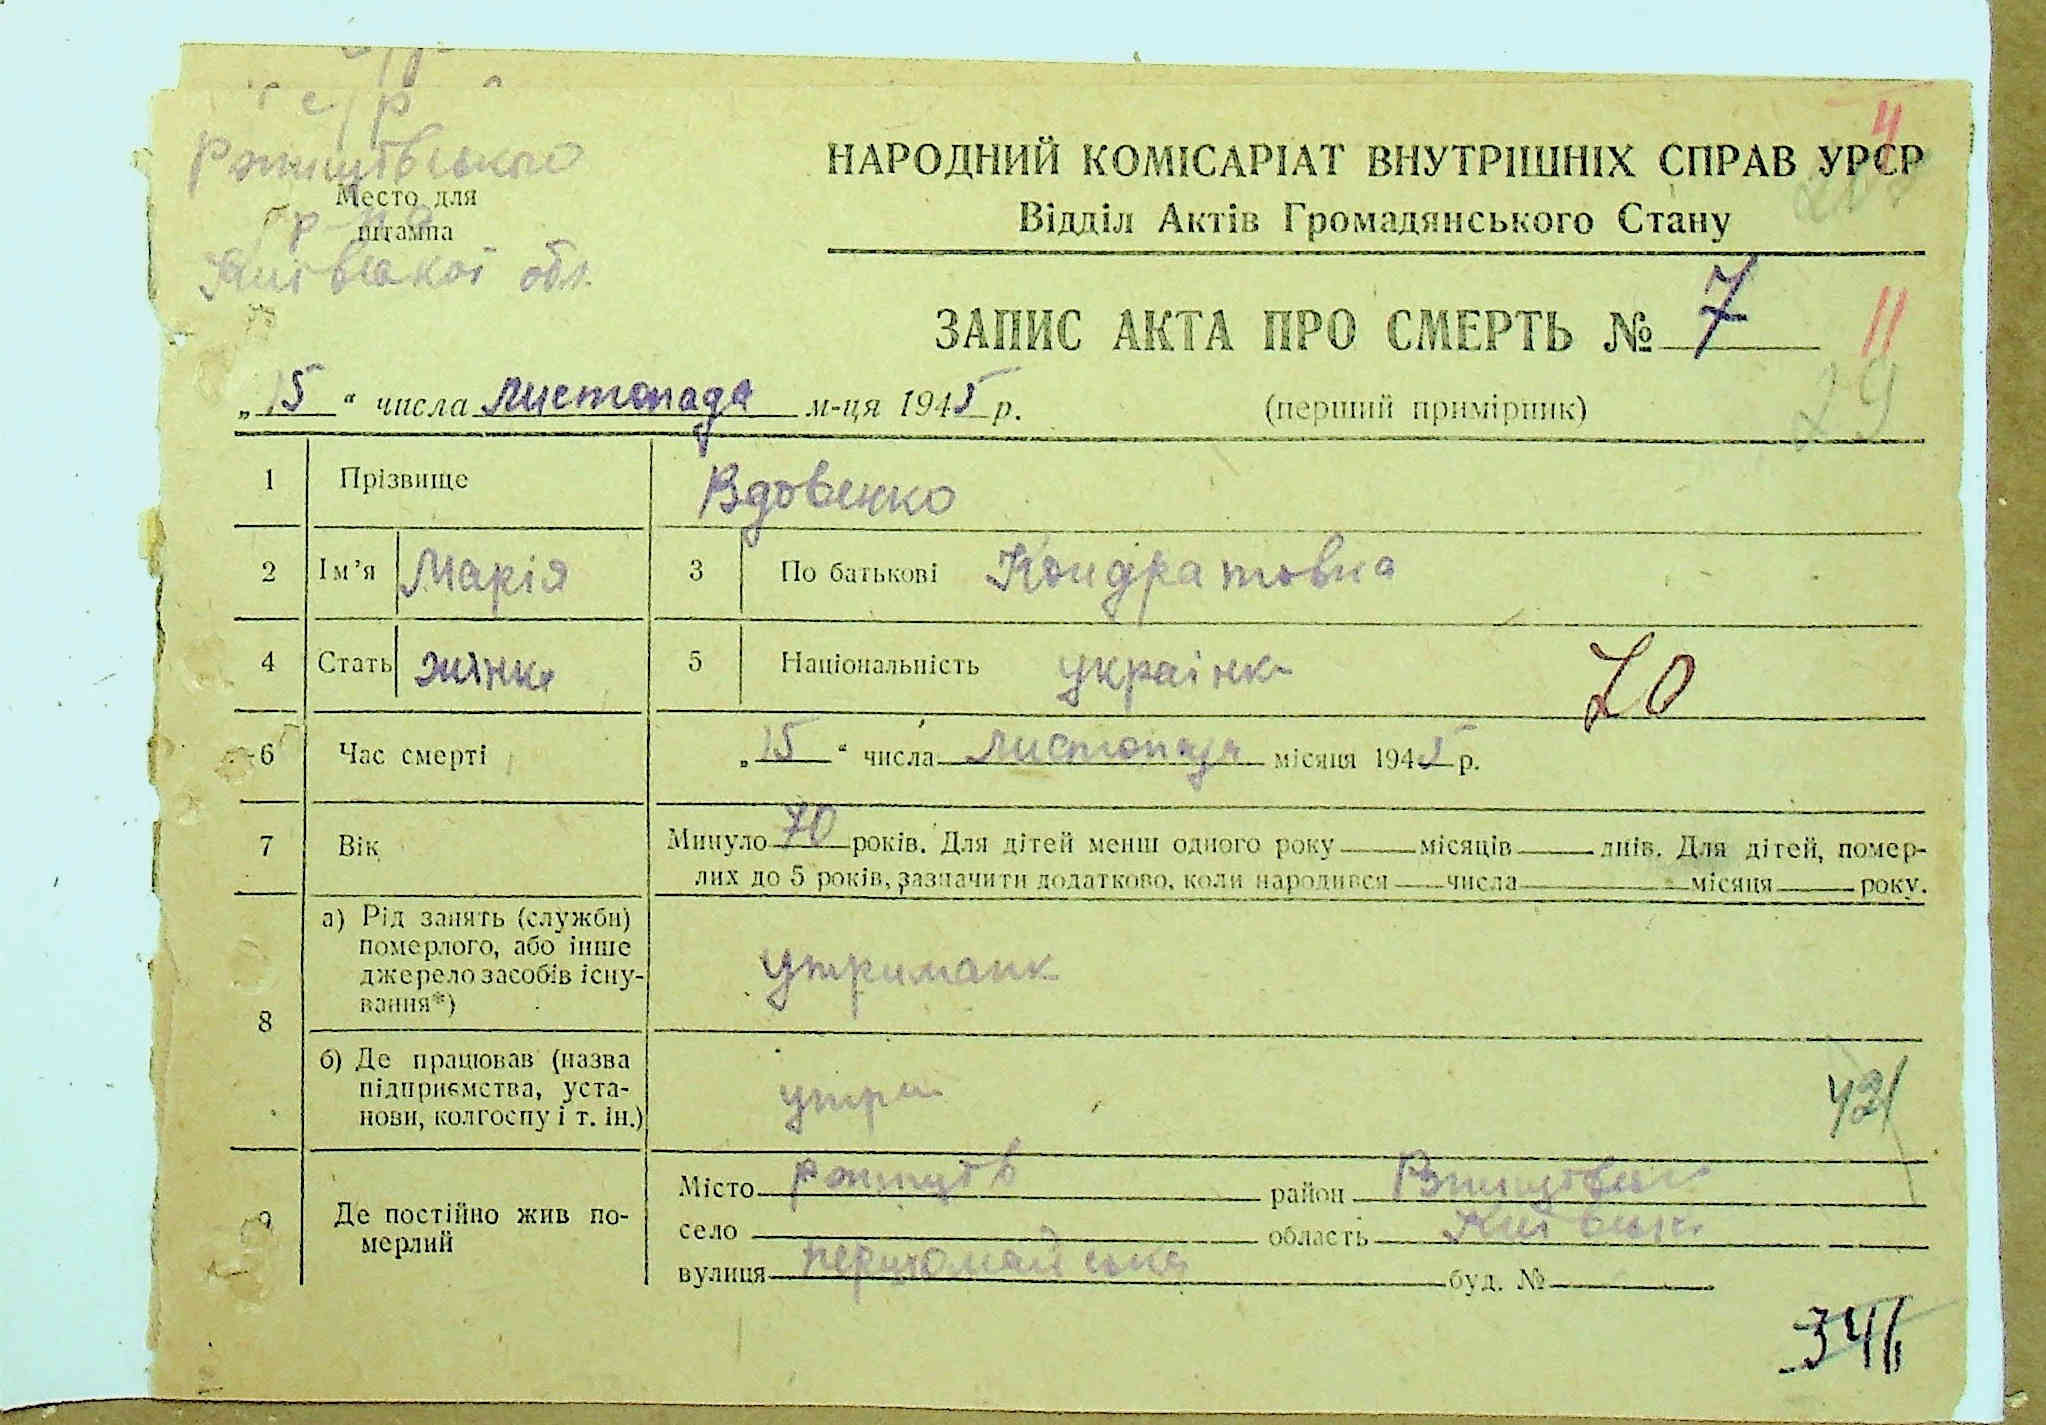 с/р
Ржищівського
Место для
штампа
р-на
Київської обл.
НАРОДНИЙ КОМІСАРІАТ ВНУТРІШНІХ СПРАВ УРСР
Відділ Актів Громадянського Стану
4
ЗАПИС АКТА ПРО СМЕРТЬ № 7
11
29
„15" числа листопада м-ця 1945 р. (перший примірник)
1 Прізвище Вдовенко
2 Ім'я Марія 3 По батькові Кондратовна
4 Стать жінк 5 Національність українк
70
6 Час смерті „15" числа листопада місяця 1945 р.
7 Вік Минуло 70 років. Для дітей менш одного року місяців днів. Для дітей, помер-
лих до 5 років, зазначити додатково, коли народився числа місяця року.
8 а) Рід занять (служби)
померлого, або інше
джерело засобів існу-
вання*)
утриманк
б) Де працював (назва
підприємства, уста-
нови, колгоспу і т. ін.)
утри
421
9 Де постійно жив по-
мерлий
Місто Ржищів район Ржищівськ
село область Київськ
вулиця першомайська буд. №
34